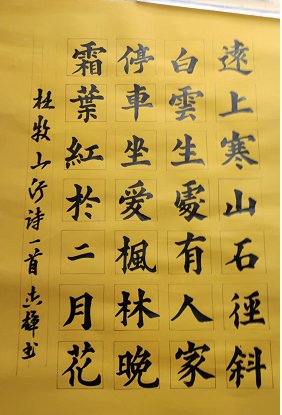 遠上寒山石徑斜
白雲生處有人家
停車坐愛楓林晚
霜葉紅於二月花
杜牧山行詩一首 志輝書